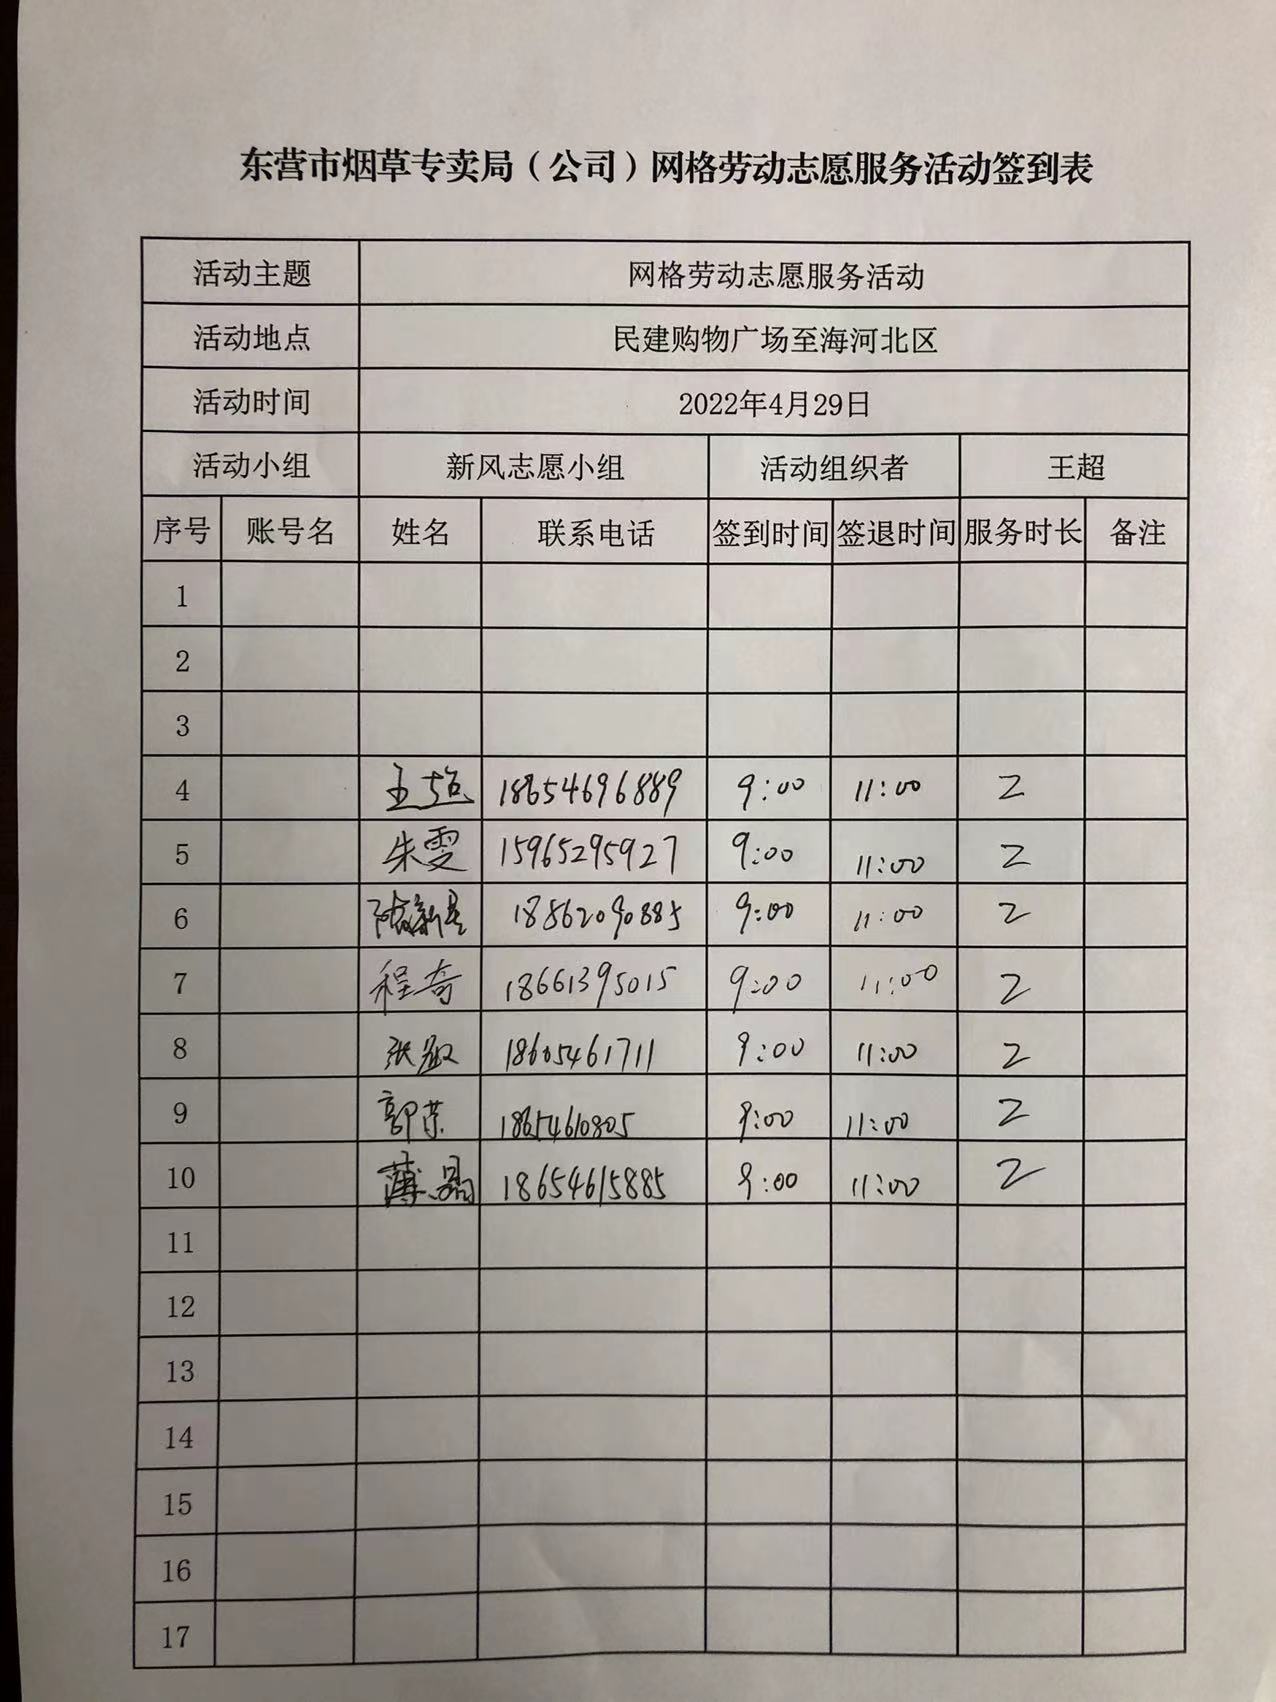 东营市烟草专卖局（公司）网格劳动志愿服务活动签到表
活动主题 网格劳动志愿服务活动
活动地点 民建购物广场至海河北区
活动时间 2022年4月29日
活动小组 新风志愿小组 活动组织者 王超
序号 账号名 姓名 联系电话 签到时间 签退时间 服务时长 备注
1
2
3
4 王超 18654696889 9:00 11:00 2
5 朱雯 15965295927 9:00 11:00 2
6 18562090885 9:00 11:00 2
7 程奇 18661395015 9:00 11:00 2
8 18605461711 9:00 11:00 2
9 9:00 11:00 2
10 薄晶 18654615885 9:00 11:00 2
11
12
13
14
15
16
17